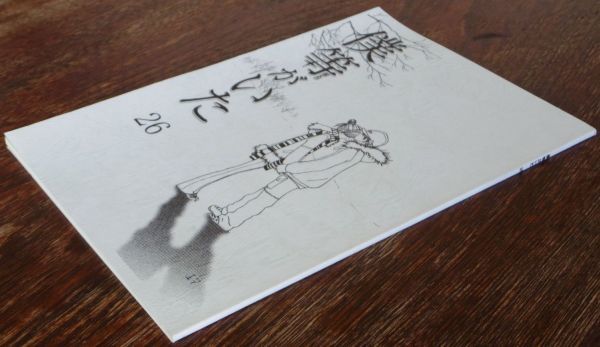 僕等がいた
26